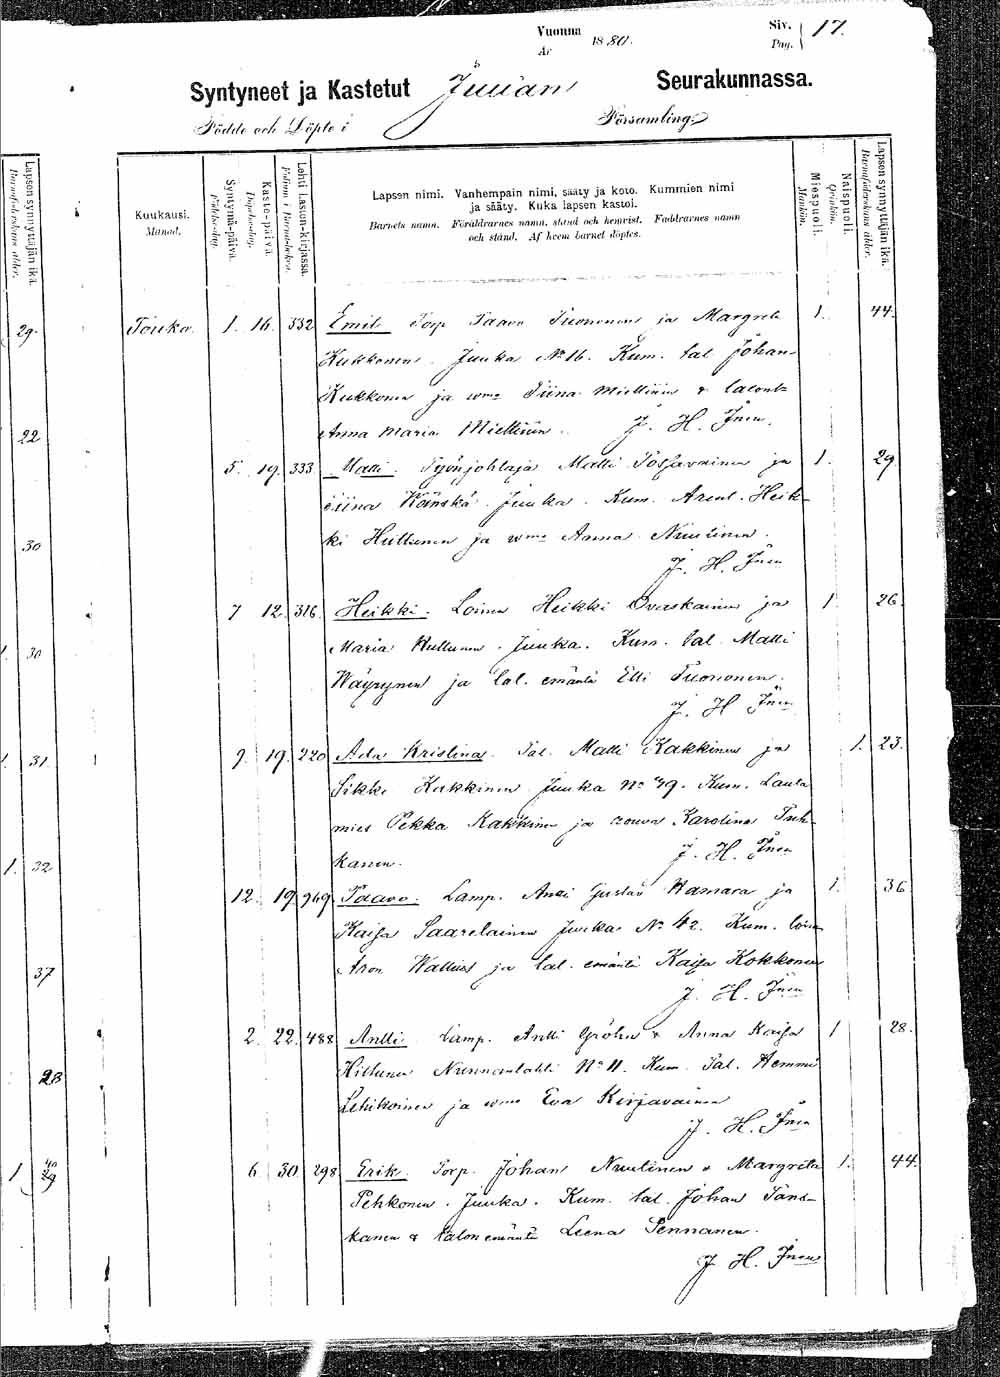 Vuonna 1880. Siv. 17.
År Pag.
Syntyneet ja Kastetut Juuan Seurakunnassa.
Födde och Döpte i Församling.
Lapsen synnyttäjän ikä.
Barnaföderskans ålder.
Kuukausi.
Månad.
Syntymä-päivä.
Födelsedag.
Kaste-päivä.
Döpelsedag.
Lehti Lasten-kirjassa.
Folium i Barnaboken.
Lapsen nimi. Vanhempain nimi, sääty ja koto. Kummien nimi
ja sääty. Kuka lapsen kastoi.
Barnets namn. Föräldrarnes namn, stånd och hemvist. Faddrarnes namn
och stånd. Af hvem barnet döptes.
Miespuoli.
Mankön.
Naispuoli.
Qvinkön.
Lapsen synnyttäjän ikä.
Barnaföderskans ålder.
29. Touko. 1. 16. 332 Emil Torp. Paavo Tuononen ja Margreta 1. 44.
Kukkonen. Juuka No 16. Kum. tal. Johan
Kukkonen ja Tiina Miettinen &
22 Anna Maria Miettinen. J. H.
5. 19. 333 Matti. Työnjohtaja Matti Toljavainen ja 1. 29
Tiina Känskä. Juuka. Kum. Arent. Heik-
30 ki Hultunen ja Anna Nuutinen.
J. H.
7 12. 316. Heikki. Loinen Heikki Ovaskainen ja 1 26.
1. 30 Maria Hultunen. Juuka. Kum. tal. Matti
Wäyrynen ja tal. emäntä Elli Tuononen.
J. H.
1. 31. 9. 19. 220 Ada Kristina. Tal. Matti Kakkinen ja 1. 23.
Sikke Kakkinen Juuka No 39. Kum. Lauta
mies Pekka Kakkinen ja rouva Karolina Tuh-
1. 32 kanen. J. H.
12. 19. 949 Paavo. Lamp. Antti Gustav Hamara ja 1. 36
Kaisa Saarelainen Juuka No 42. Kum. loinen
37 Aron Wallius ja tal. emäntä Kaisa Kokkonen
J. H.
2. 22. 488 Antti. Lamp. Antti Gröhn & Anna Kaisa 1 28.
28 Hiltunen Nunnanlahti No 11. Kum. Tal. Hemmi
Lehikoinen ja Eva Kirjavainen
J. H.
1 29 6. 30. 298 Erik. Torp. Johan Nuutinen & Margreta 1. 44.
Pehkonen. Juuka. Kum. tal. Johan Täns-
kanen & talon emäntä Leena Sennanen.
J. H.